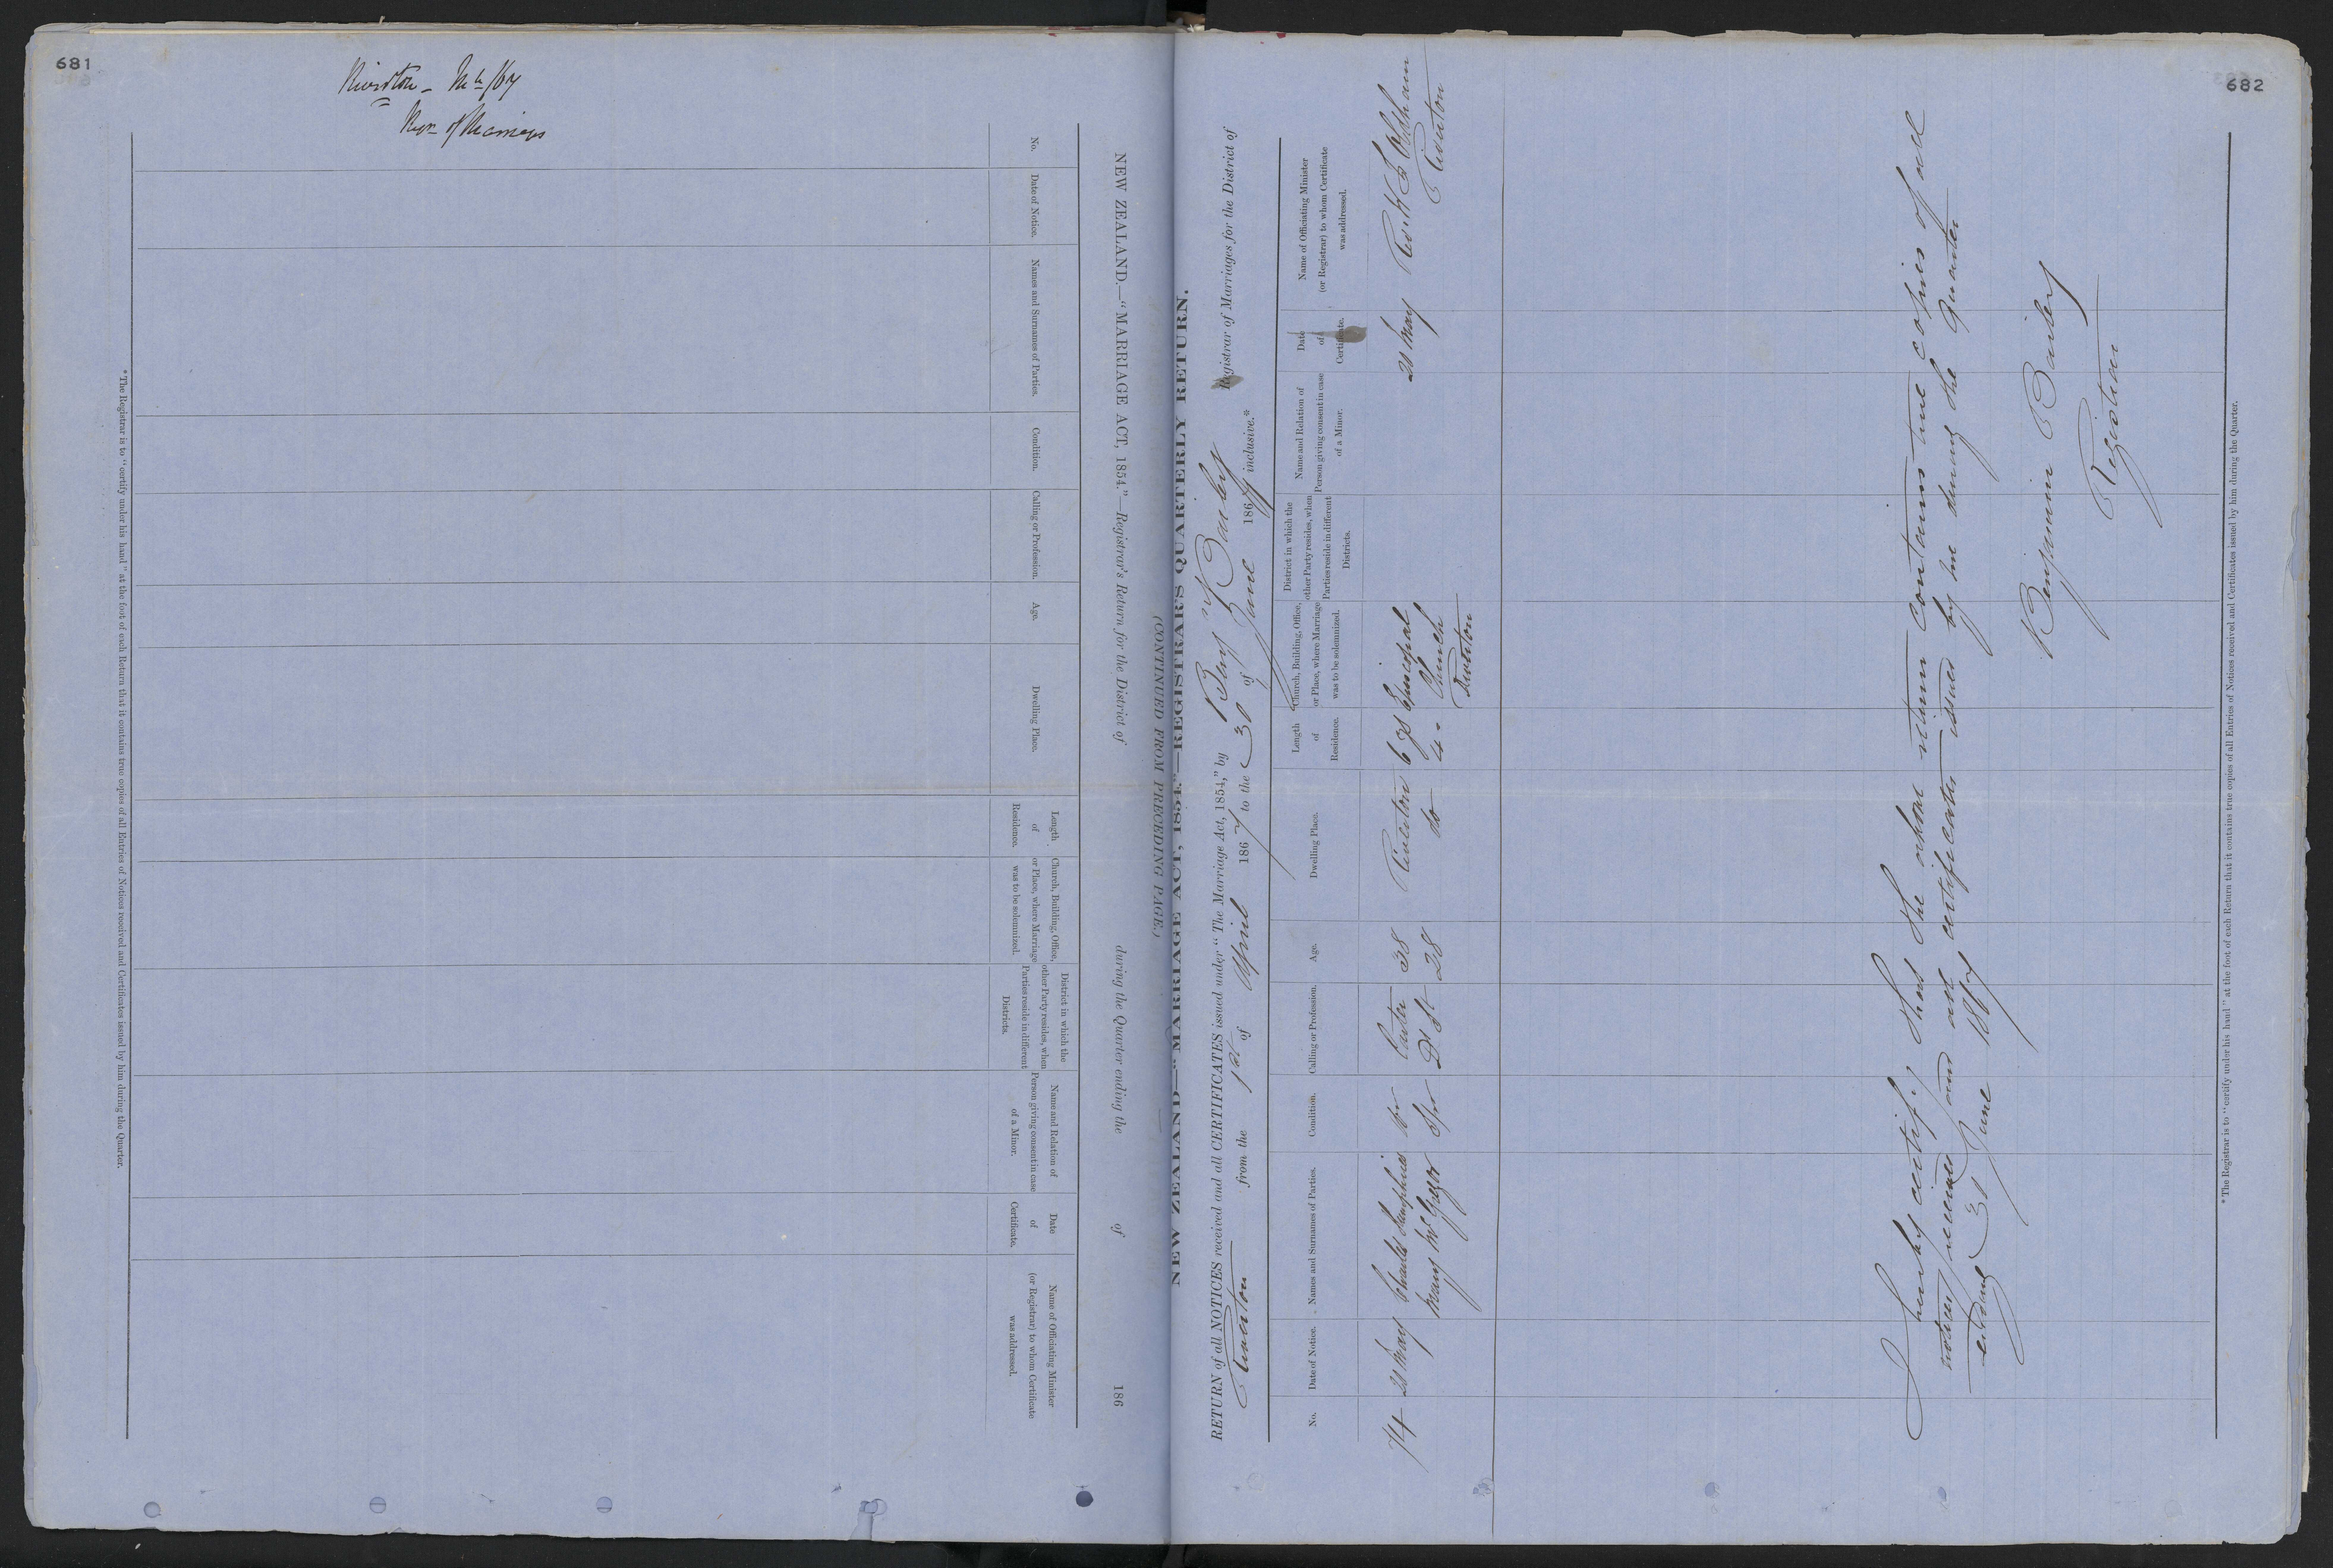 681
Riverton - 
Regr of Marriages
NEW ZEALAND.—"MARRIAGE ACT, 1854."—Registrar's Return for the District of during the Quarter ending the of 186
No.
Date of Notice.
Names and Surnames of Parties.
Condition.
Calling or Profession.
Age.
Dwelling Place.
Length of Residence.
Church, Building, Office, or Place, where Marriage was to be solemnized.
District in which the other Party resides, when Parties reside in different Districts.
Name and Relation of Person giving consent in case of a Minor.
Date of Certificate.
Name of Officiating Minister (or Registrar) to whom Certificate was addressed.
* The Registrar is to "certify under his hand" at the foot of each Return that it contains true copies of all Entries of Notices received and Certificates issued by him during the Quarter.
682
(CONTINUED FROM PRECEDING PAGE.)
NEW ZEALAND—"MARRIAGE ACT, 1854"—REGISTRAR'S QUARTERLY RETURN.
RETURN of all NOTICES received and all CERTIFICATES issued under "The Marriage Act, 1854," by Benj Bailey Registrar of Marriages for the District of
Riverton from the 1st of April 1867 to the 30 of June 1867 inclusive.*
No.
Date of Notice.
Names and Surnames of Parties.
Condition.
Calling or Profession.
Age.
Dwelling Place.
Length of Residence.
Church, Building, Office, or Place, where Marriage was to be solemnized.
District in which the other Party resides, when Parties reside in different Districts.
Name and Relation of Person giving consent in case of a Minor.
Date of Certificate.
Name of Officiating Minister (or Registrar) to whom Certificate was addressed.
74 May Charles Humphries Carter 38 Riverton 6 ys Episcopal May Oldham
Mary McGregor Spr 28 do 4 " Church Riverton
Riverton
I hereby certify that the above return contains true copies of all
notices received and all certificates issued by me during the Quarter
ending June 1867
Benjamin Bailey
Registrar
* The Registrar is to "certify under his hand" at the foot of each Return that it contains true copies of all Entries of Notices received and Certificates issued by him during the Quarter.